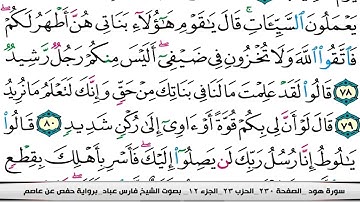 يَعْمَلُونَ ٱلسَّيِّـَٔاتِ ۚ قَالَ يَـٰقَوْمِ هَـٰٓؤُلَآءِ بَنَاتِى هُنَّ أَطْهَرُ لَكُمْ ۖ
فَٱتَّقُوا۟ ٱللَّهَ وَلَا تُخْزُونِ فِى ضَيْفِىٓ ۖ أَلَيْسَ مِنكُمْ رَجُلٌ رَّشِيدٌ
٧٨ قَالُوا۟ لَقَدْ عَلِمْتَ مَا لَنَا فِى بَنَاتِكَ مِنْ حَقٍّ وَإِنَّكَ لَتَعْلَمُ مَا نُرِيدُ
٧٩ قَالَ لَوْ أَنَّ لِى بِكُمْ قُوَّةً أَوْ ءَاوِىٓ إِلَىٰ رُكْنٍ شَدِيدٍ ٨٠ قَالُوا۟
يَـٰلُوطُ إِنَّا رُسُلُ رَبِّكَ لَن يَصِلُوٓا۟ إِلَيْكَ ۖ فَأَسْرِ بِأَهْلِكَ بِقِطْعٍ
سورة هود _ الصفحة ٢٣٠ _ الحزب ٢٣ _ الجزء ١٢ _ بصوت الشيخ فارس عباد _ برواية حفص عن عاصم